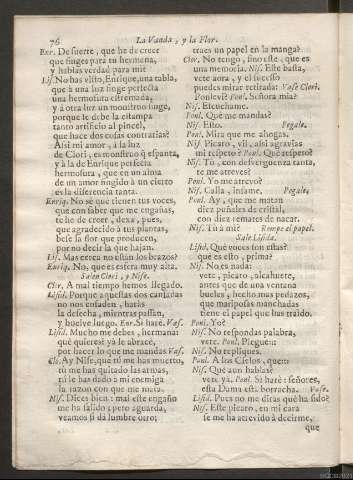 76 La Vanda, y la Flor.
Enr. De suerte, que he de creer
que finges para tu hermana,
y hablas verdad para mi?
Lis. No has visto, Enrique, una tabla,
que à una luz finge perfecta
una hermosura estremada,
y à otra luz un monstruo finge,
porque le debe la estampa
tanto artificio al pincèl,
que hace dos cosas contrarias?
Assi mi amor, à la luz
de Clori, es monstro q̃ espanta,
y à la de Enrique perfecta
hermosura, que en un alma
de un amor fingido à un cierto
es la diferencia tanta.
Enriq. No sè que tienen tus voces,
que con saber que me engañas,
te he de creer, dexa, pues,
que agradecido à tus plantas,
bese la flor que producen,
por no decir la que hajan.
Lis. Mas cerca no estàn los brazos?
Enriq. No, que es esfera muy alta.
Salen Clori, y Nise.
Clor. A mal tiempo hemos llegado.
Lisid. Porque aquellas dos cansadas
no nos enfaden, haràs
la desecha, mientras passan,
y buelve luego. Enr. Sì harè. Vas.
Lisid. Mucho me debes, hermana:
què quieres? yà le abracè,
por hacer lo que me mandas Vas.
Clo. Ay Nise, que tù me has muerto,
tù me has quitado las armas,
tù le has dado à mi enemiga
la razon con que me mata.
Nis. Dices bien: mal este engaño
me ha salido; pero aguarda,
veamos si dà lumbre otro;
traes un papel en la manga?
Clor. No tengo, sino este, que es
una memoria. Nis. Este basta,
vete aora, y el sucesso
puedes mirar retirada: Vase Clori.
Ponlevi? Ponl. Señora mia?
Nis. Escuchame.
Ponl. Què me mandas?
Nis. Esto. Pegale.
Ponl. Mira que me ahogas.
Nis. Picaro, vil, assi agravias
mi respeto? Ponl. Què respeto?
Nis. Tù, con desverguenza tanta,
te me atreves?
Ponl. Yo me atrevo?
Nis. Calla, infame. Pegale.
Ponl. Ay, que me matan
diez peñales de cristal,
con diez remates de nacar.
Nis. Tù à mi? Rompe el papel.
Sale Lisida.
Lisid. Què voces son estas?
què es esto, prima?
Nis. No es nada:
vete, picaro, alcahuete,
antes que de una ventana
bueles, y hecho mis pedazos,
que mariposas manchadas
tiene el papel que has traìdo.
Ponl. Yo?
Nis. No respondas palabra,
vete. Ponl. Plegue::
Nis. No repliques.
Ponl. A los Cielos, que::
Nis. Què aun hablas?
vete yà. Ponl. Sì harè: señores,
esta Dama està borracha. Vase.
Lisid. Pues no me diràs què ha sido?
Nis. Este picaro, en mi cara
se me ha atrevido à decirme,
que